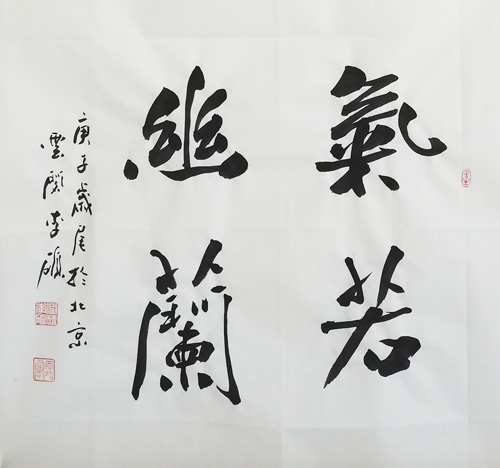 氣若
幽蘭
庚子歲尾於北京
雲 李